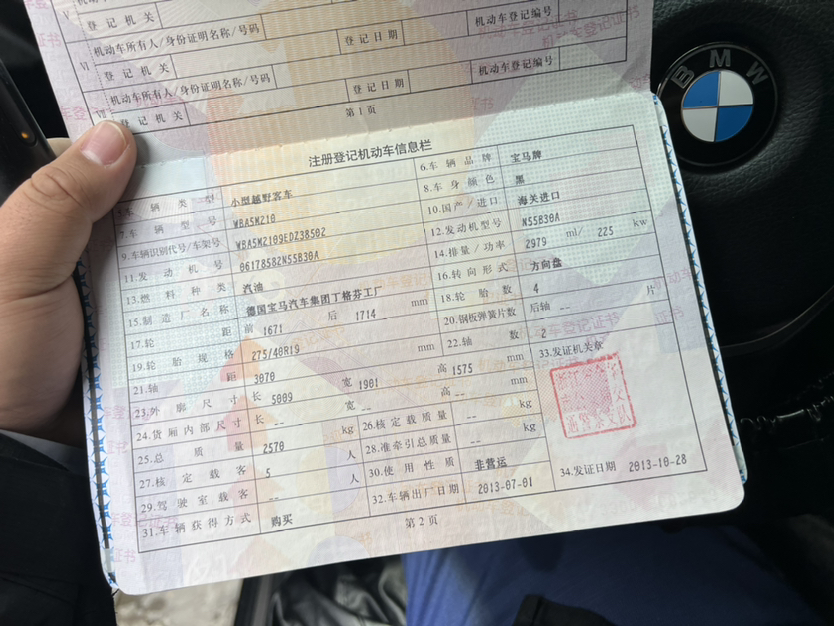 登记机关
机动车登记编号
Ⅵ 机动车所有人/身份证明名称/号码
登记机关 登记日期
机动车登记编号
Ⅶ 机动车所有人/身份证明名称/号码
登记机关 登记日期
第1页
注册登记机动车信息栏
5.车辆类型 小型越野客车 6.车辆品牌 宝马牌
7.车辆型号 WBA5M210 8.车身颜色 黑
9.车辆识别代号/车架号 WBA5M2109EDZ38502 10.国产/进口 海关进口
11.发动机号 06178582N55B30A 12.发动机型号 N55B30A
13.燃料种类 汽油 14.排量/功率 2979 ml/ 225 kw
15.制造厂名称 德国宝马汽车集团丁格芬工厂 16.转向形式 方向盘
17.轮距 前 1671 后 1714 mm 18.轮胎数 4
19.轮胎规格 275/40R19 20.钢板弹簧片数 后轴 -- 片
21.轴距 3070 mm 22.轴数 2
23.外廓尺寸 长 5009 宽 1901 高 1575 mm 33.发证机关章
24.货厢内部尺寸 长 -- 宽 -- 高 -- mm
25.总质量 2570 kg 26.核定载质量 -- kg
27.核定载客 5 人 28.准牵引总质量 -- kg
29.驾驶室载客 -- 人 30.使用性质 非营运
31.车辆获得方式 购买 32.车辆出厂日期 2013-07-01 34.发证日期 2013-10-28
第2页
BMW